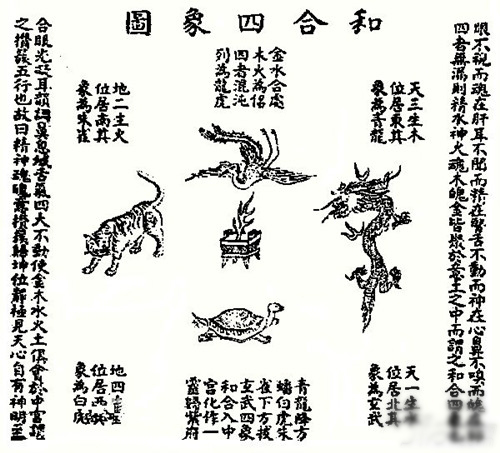 和合四象圖
眼不視而魂在肝耳不聞而精在腎舌不動而神在心鼻不嗅而魄在
四者無漏則精水神火魂木魄金皆聚於意土之中而謂之和合四
天三生木
位居東其
象為青龍
金水合處
木火為侶
四者混沌
列為龍虎
地二生火
位居南其
象為朱雀
天一生水
位居北其
象為玄武
青龍降方
蟠伯虎朱
雀下方拔
玄武四象
和合入中
宮化作一
靈歸紫府
地四
位居西其
象為白虎
合眼光凝耳韻調鼻息緘舌氣四大不動使金木水火土俱會於中宮謂
之攢簇五行也故曰精神魂魄意攢簇歸坤位靜極見天心自有神明至